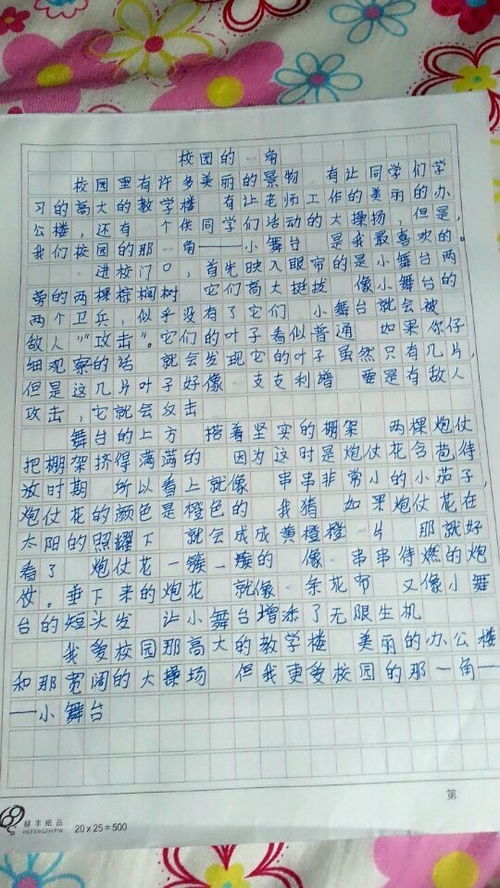 校园的一角
校园里有许多美丽的景物 有让同学们学
习的高大的教学楼 有让老师工作的美丽的办
公楼，还有 个供同学们活动的大操场，但是，
我们校园的那一角——小舞台 是我最喜欢的。
进校门口，首先映入眼帘的是小舞台两
旁的两棵棕榈树 它们高大挺拔 像小舞台的
两个卫兵，似乎没有了它们 小舞台就会被
敌人“攻击”。它们的叶子看似普通 如果你仔
细观察的话 就会发现它的叶子虽然只有几片，
但是这几片叶子好像 支支利 要是有敌人
攻击，它就会反击
舞台的上方 搭着坚实的棚架 两棵炮仗
把棚架挤得满满的 因为这时是炮仗花含苞待
放时期 所以看上就像 串串非常小的小茄子，
炮仗花的颜色是橙色的 我猜 如果炮仗花在
太阳的照耀下 就会成成黄橙橙一片 那就好
看了 炮仗花一簇一簇的 像一串串待燃的炮
仗。垂下来的炮花 就像一条花布 又像小舞
台的短头发 让小舞台增添了无限生机
我爱校园那高大的教学楼 美丽的办公楼
和那宽阔的大操场 但我更爱校园的那一角—
—小舞台
第
20×25=500